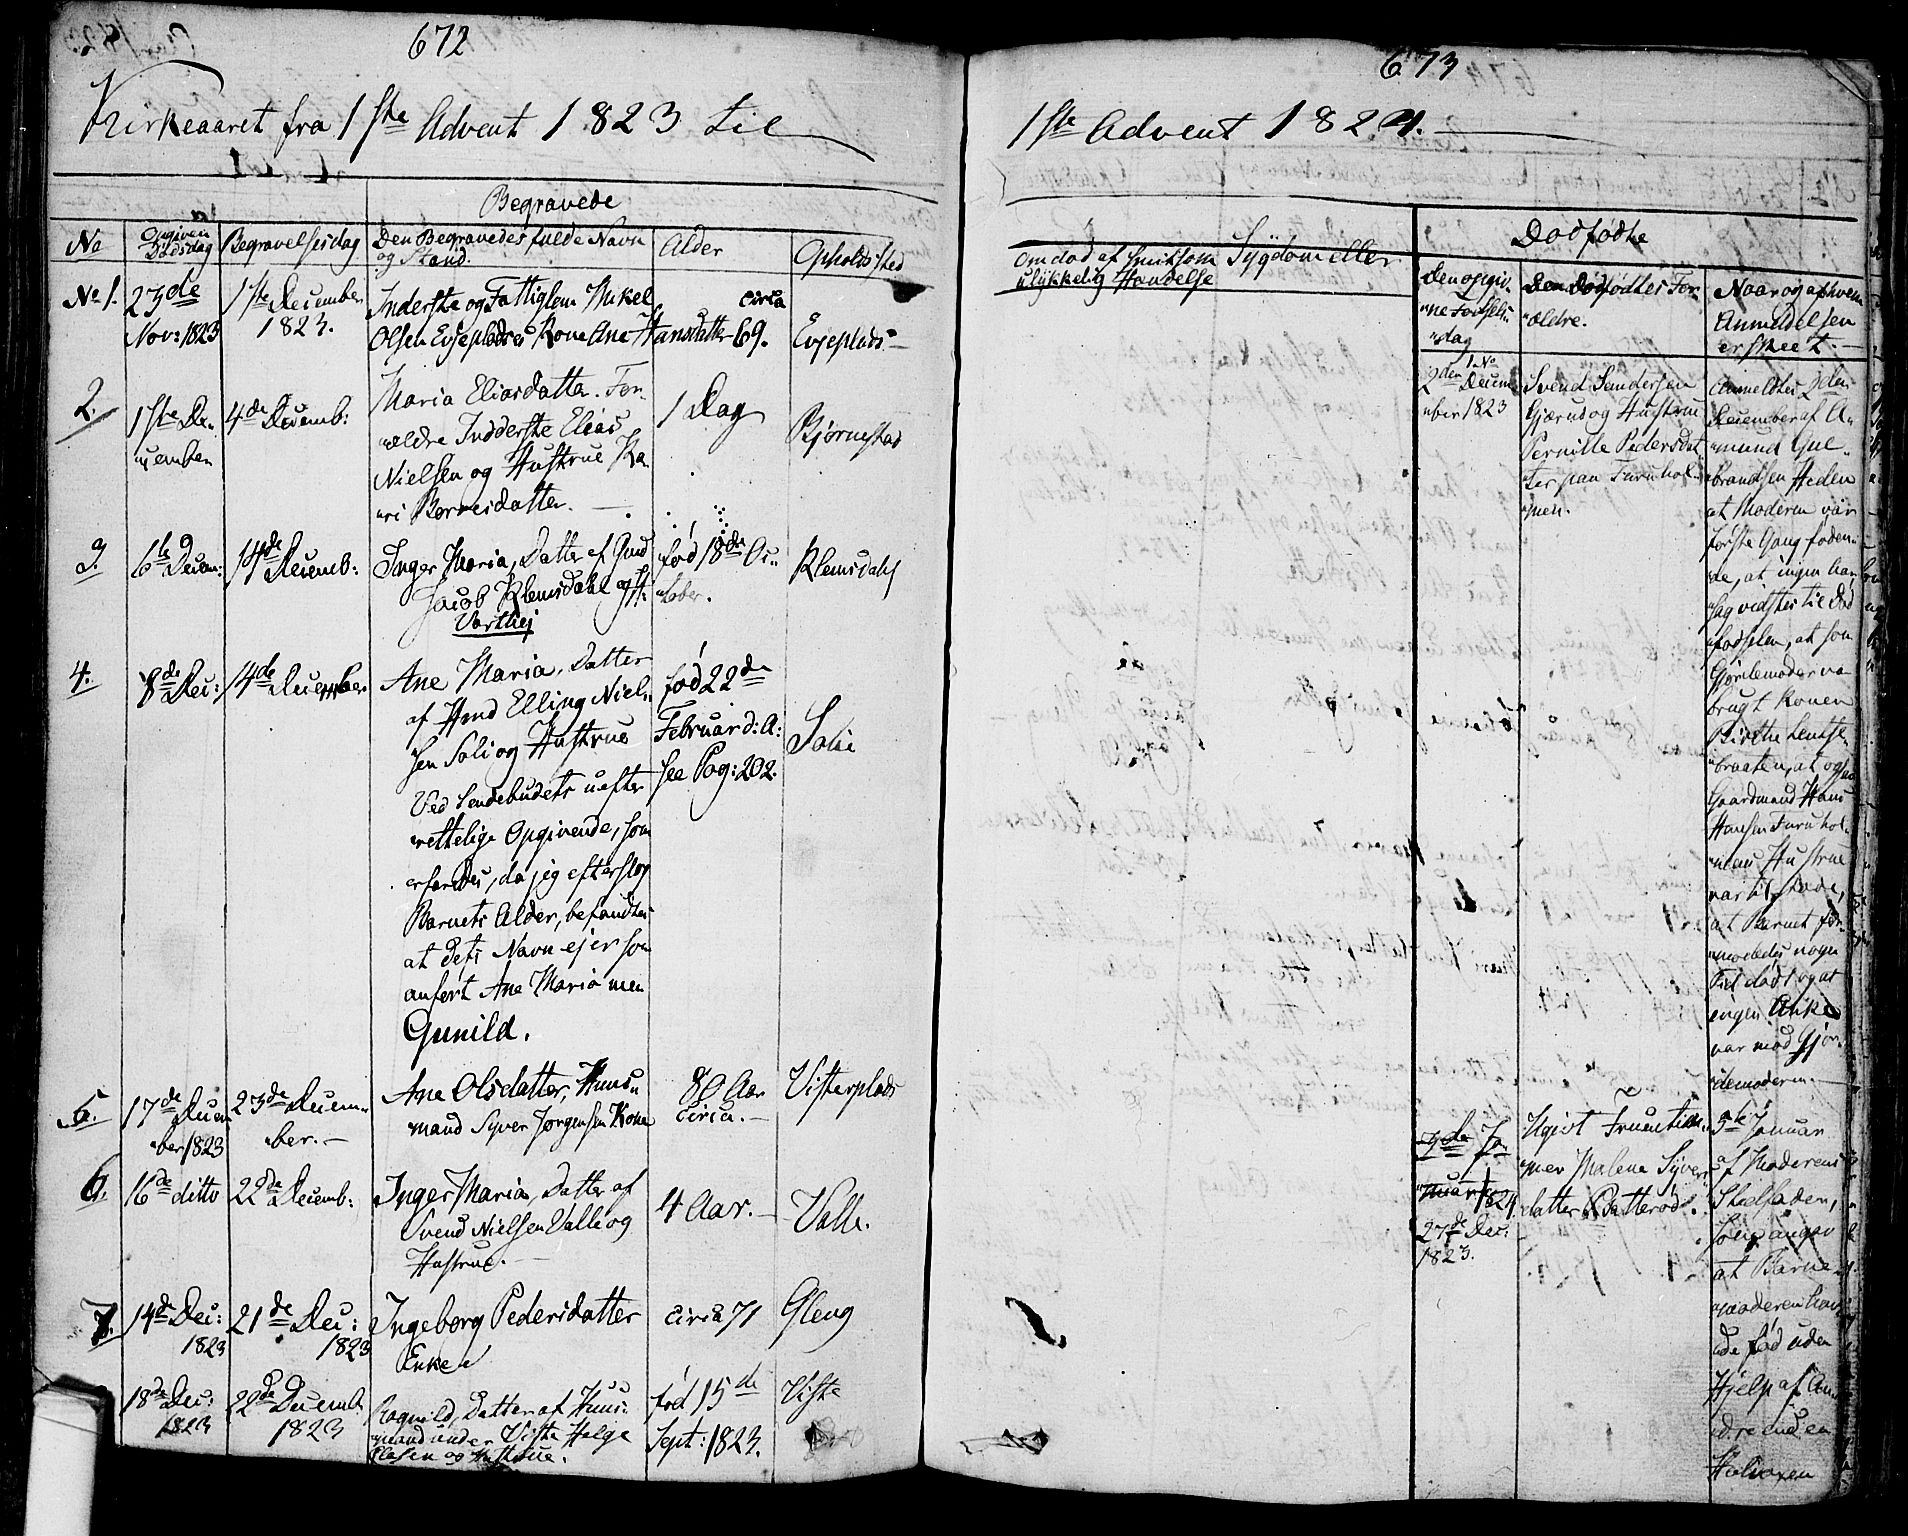 672
Kirkeaaret fra 1ste Advent 1823 til
Begravede
No
Opgiven
Dødsdag
Begravelsesdag
Den Begravedes fulde Navn
og Stand.
Alder
Opholdssted
No 1.
23de
Nov: 1823
1ste December
1823.
Inderste og Fattiglem Mikel
Olsen Evjeplads Kone Ane Hansdatter
circa
69.
Evjeplads
2.
1ste De-
cember
4de Decemb:
Maria Eliasdatter. For-
ældre Inderste Elias
Nielsen og Hustrue Ka-
ri Børresdatter.
1 Dag
Bjørnestad
3.
6te Decem:
14de Decemb:
Inger Maria, Datter af Gmd
Jacob Klemsdahl og H:
født 18de Oc-
tober.
Klemsdahl
4.
8de Dec:
14de December
Ane Maria, Datter
af Hmd Elling Niel-
sen Solie og Hustrue
Ved Sendebudets uefter-
rettelige Opgivende, som
erfaredes, da jeg efterslog
Barnets Alder, befandtes
at dets Navn ej er som
anført Ane Maria men
Gunild.
født 22de
Februar d: A:
see Pag: 202.
Solie
5.
17de Decem
ber 1823
23de Decem-
ber.
Ane Olsdatter, Huus-
mand Syver Jørgensen Kone
80 Aar
circa.
Visterplads
6.
16de ditto
22de Decemb:
Inger Maria, Datter af
Svend Nielsen Valle og
Hustrue.
4 Aar.
Valle.
7.
14de Dec:
1823
21de Dec:
1823
Ingeborg Pedersdatter
Enke
circa 71
Gleng
18de Dec:
1823
22de Decemb.
1823
Ragnild, Datter af Huus-
mand under Viste Helge
Olesen og Hustrue.
født 15de
Sept: 1823.
Viste
673
1ste Advent 1824.
Om død af smitsom Sygdom eller
ulykkelig Hændelse
Dødfødte
Den opgiv-
ne Fødsels-
dag
Den Dødfødtes For-
ældre.
Naar og af hvem
Anmeldelsen
er skeet.
1. No
2den Decem-
ber 1823
Svend Sandersen
Gjærud og Hustrue
Pernille Pedersdat-
ter paa Furuhol-
men.
Anmeldtes 2den
December af A-
mund Gul-
brandsen Heden
at Moderen var
første Gang føden-
de, at ingen Aar-
sag vidstes til Død
fødselen, at som
Gjordemoder va
brugt Konen
Birthe
braaten, at ogsaa
Gaardmand Hans
Hansen Furuhol-
men Hustrue
var til stede,
at Barnet for-
modedes nogen
Tid dødt og at
ingen Anke
var mod Gjor-
demoderen.
3de Ja-
nuar 1824
27de Dec:
1823.
Ugivt Fruentim-
mer Malene Syvers-
datter
5te Januar
af Moderens
Stedfader,
som angav
at Barne-
moderen hav-
de fød uden
Hjelp af An-
dre end en